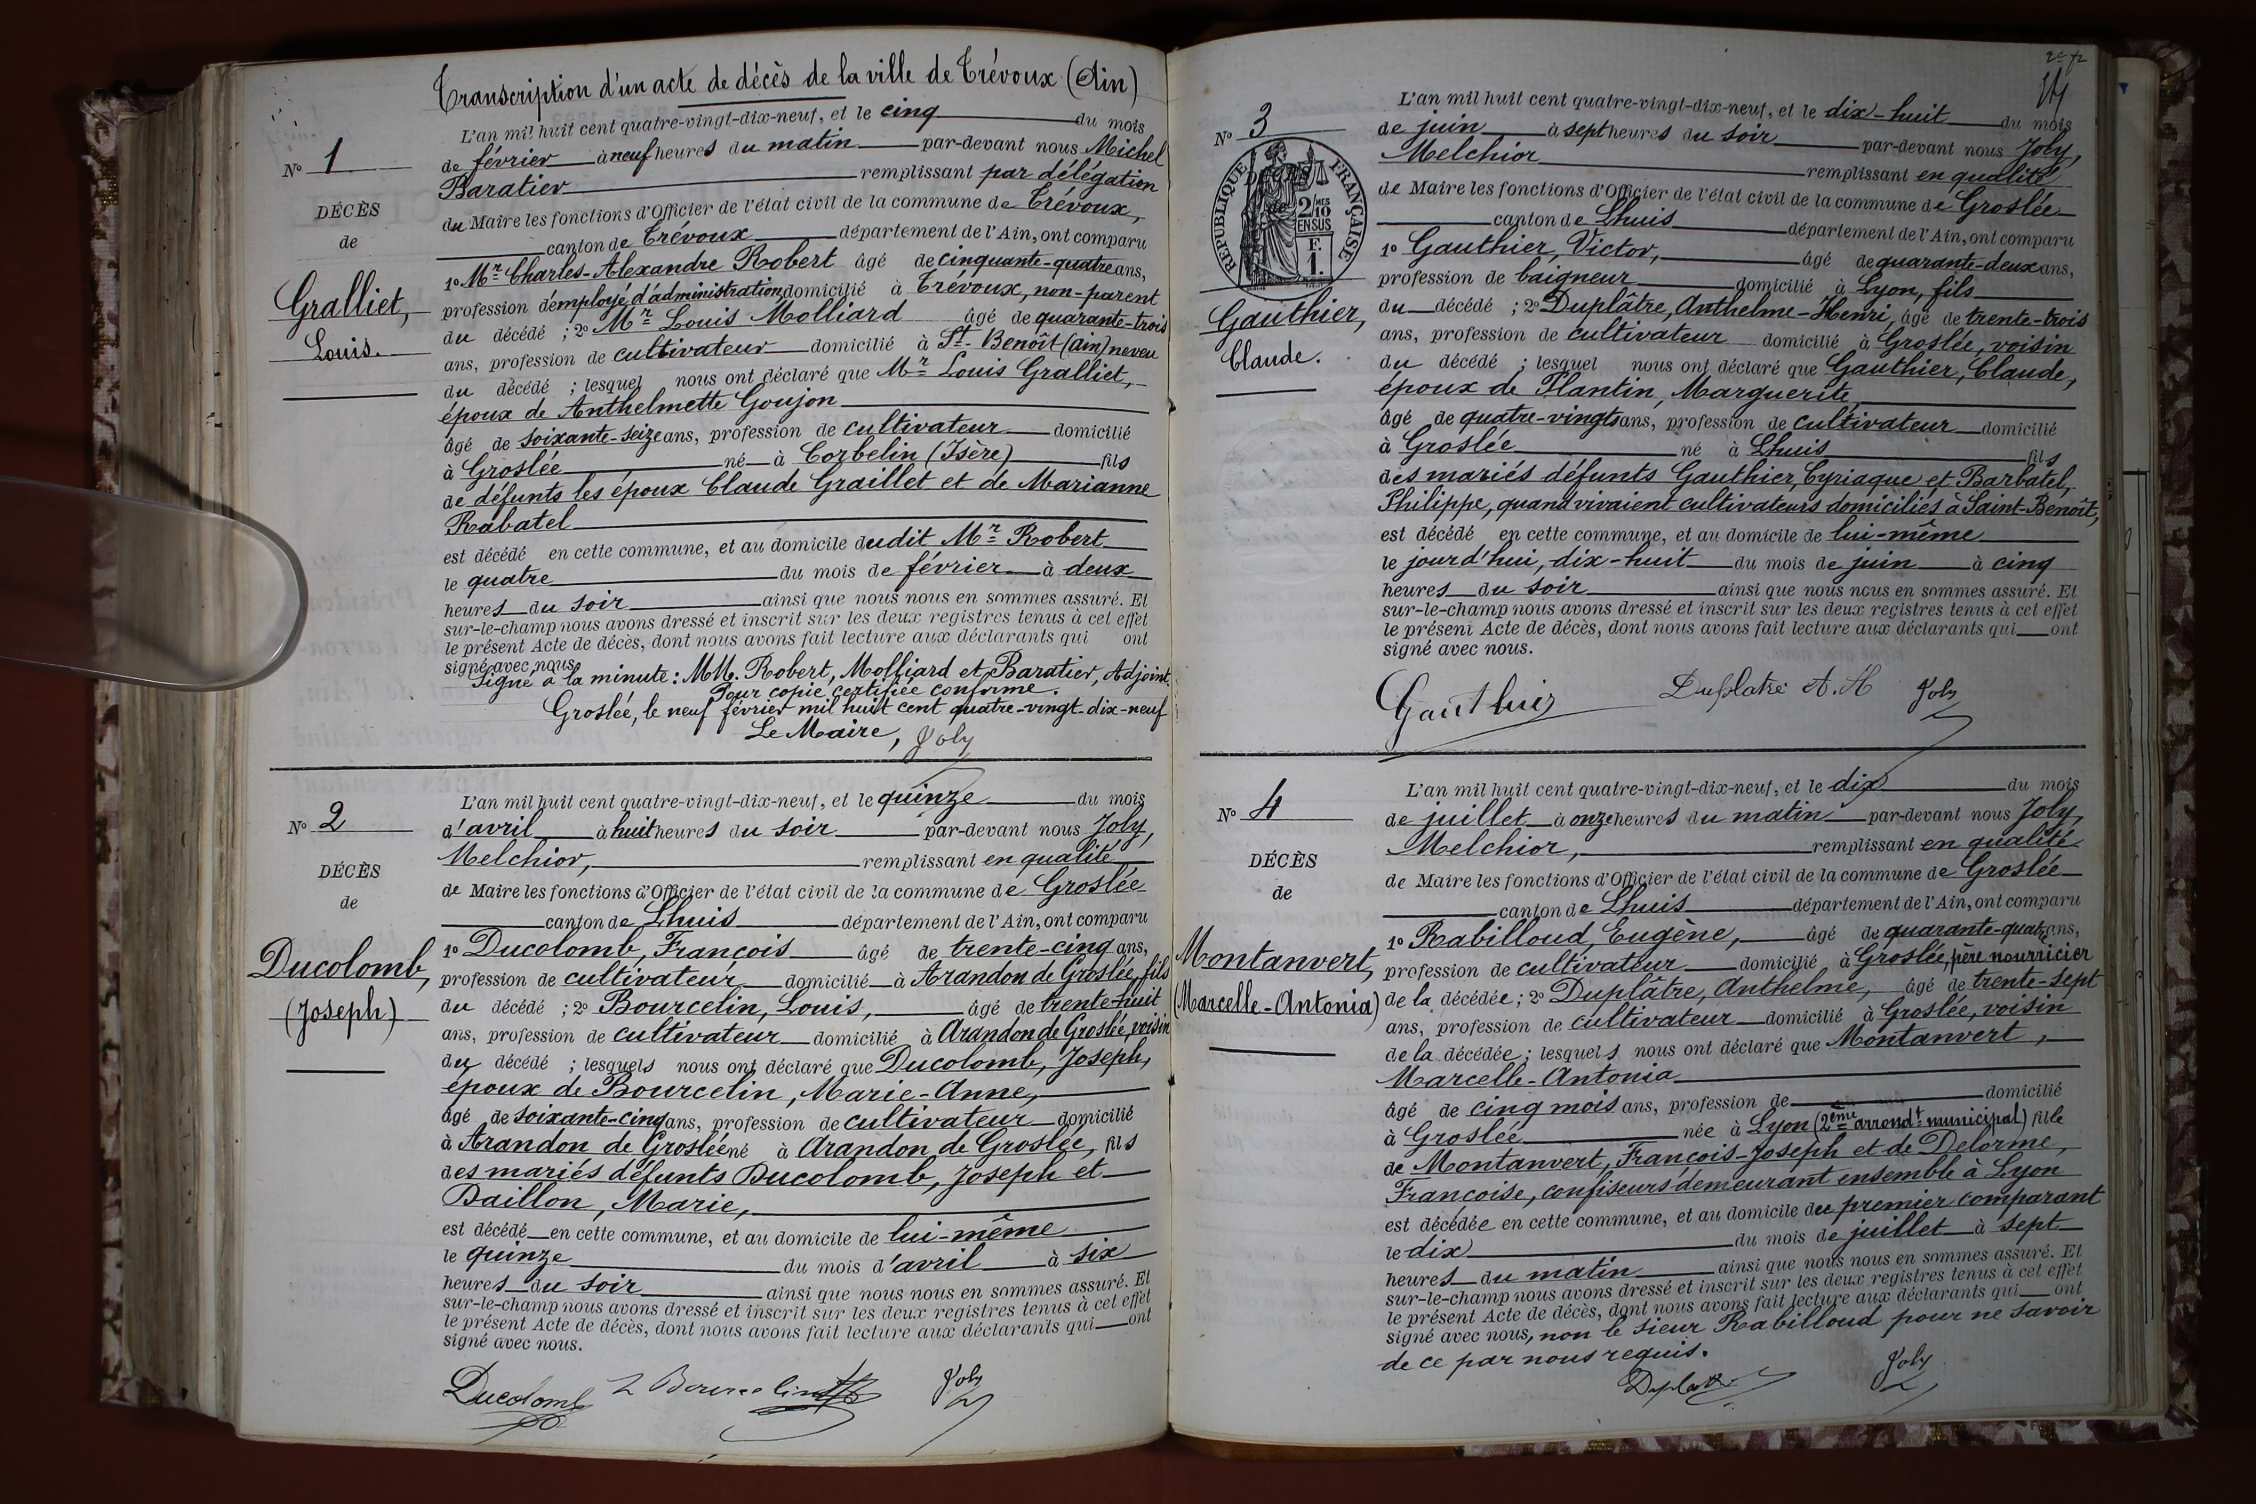 Transcription d'un acte de décès de la ville de Trévoux (Ain)
N° 1
DÉCÈS
de
Gralliet,
Louis.
L'an mil huit cent quatre-vingt-dix-neuf, et le cinq du mois
de février à neuf heures du matin par-devant nous Michel
Baratier remplissant par délégation
du Maire les fonctions d'Officier de l'état civil de la commune de Trévoux,
canton de Trévoux département de l'Ain, ont comparu
1° Mr Charles-Alexandre Robert âgé de cinquante-quatre ans,
profession d'employé d'administration domicilié à Trévoux, non-parent
du décédé ; 2° Mr Louis Molliard âgé de quarante-trois
ans, profession de cultivateur domicilié à St-Benoît (ain) neveu
du décédé ; lesquel nous ont déclaré que Mr Louis Gralliet,
époux de Anthelmette Goujon
âgé de soixante-seize ans, profession de cultivateur domicilié
à Groslée né à Corbelin (Isère) fils
de défunts les époux Claude Graillet et de Marianne
Rabatel
est décédé en cette commune, et au domicile dudit Mr Robert
le quatre du mois de février à deux
heures du soir ainsi que nous nous en sommes assuré. Et
sur-le-champ nous avons dressé et inscrit sur les deux registres tenus à cet effet
le présent Acte de décès, dont nous avons fait lecture aux déclarants qui ont
signé avec nous.
Signé à la minute : MM. Robert, Molliard et Baratier, Adjoint.
Pour copie certifiée conforme.
Groslée, le neuf février mil huit cent quatre-vingt-dix-neuf
Le Maire, Joly
N° 2
DÉCÈS
de
Ducolomb,
(Joseph)
L'an mil huit cent quatre-vingt-dix-neuf, et le quinze du mois
d'avril à huit heures du soir par-devant nous Joly,
Melchior, remplissant en qualité
de Maire les fonctions d'Officier de l'état civil de la commune de Groslée
canton de Lhuis département de l'Ain, ont comparu
1° Ducolomb, François âgé de trente-cinq ans,
profession de cultivateur domicilié à Arandon de Groslée, fils
du décédé ; 2° Bourcelin, Louis, âgé de trente-huit
ans, profession de cultivateur domicilié à Arandon de Groslée, voisin
du décédé ; lesquels nous ont déclaré que Ducolomb, Joseph,
époux de Bourcelin, Marie-Anne,
âgé de soixante-cinq ans, profession de cultivateur domicilié
à Arandon de Groslée né à Arandon de Groslée, fils
des mariés défunts Ducolomb, Joseph et
Baillon, Marie,
est décédé en cette commune, et au domicile de lui-même
le quinze du mois d'avril à six
heures du soir ainsi que nous nous en sommes assuré. Et
sur-le-champ nous avons dressé et inscrit sur les deux registres tenus à cet effet
le présent Acte de décès, dont nous avons fait lecture aux déclarants qui ont
signé avec nous.
Ducolomb L Bourcelin Joly
N° 3
RÉPUBLIQUE FRANÇAISE
2 MES
10
EN SUS
F.
1.
Gauthier,
Claude.
L'an mil huit cent quatre-vingt-dix-neuf, et le dix-huit du mois
de juin à sept heures du soir par-devant nous Joly,
Melchior remplissant en qualité
de Maire les fonctions d'Officier de l'état civil de la commune de Groslée
canton de Lhuis département de l'Ain, ont comparu
1° Gauthier, Victor, âgé de quarante-deux ans,
profession de baigneur domicilié à Lyon, fils
du décédé ; 2° Duplâtre, Anthelme-Henri, âgé de trente-trois
ans, profession de cultivateur domicilié à Groslée, voisin
du décédé ; lesquel nous ont déclaré que Gauthier, Claude,
époux de Plantin, Marguerite,
âgé de quatre-vingts ans, profession de cultivateur domicilié
à Groslée né à Lhuis fils
des mariés défunts Gauthier, Cyriaque et Barbatel,
Philippe, quand vivaient cultivateurs domiciliés à Saint-Benoît,
est décédé en cette commune, et au domicile de lui-même
le jourd'hui, dix-huit du mois de juin à cinq
heures du soir ainsi que nous nous en sommes assuré. Et
sur-le-champ nous avons dressé et inscrit sur les deux registres tenus à cet effet
le présent Acte de décès, dont nous avons fait lecture aux déclarants qui ont
signé avec nous.
Gauthier Duplatre A. H Joly
N° 4
DÉCÈS
de
Montanvert,
(Marcelle-Antonia)
L'an mil huit cent quatre-vingt-dix-neuf, et le dix du mois
de juillet à onze heures du matin par-devant nous Joly,
Melchior, remplissant en qualité
de Maire les fonctions d'Officier de l'état civil de la commune de Groslée
canton de Lhuis département de l'Ain, ont comparu
1° Rabilloud, Eugène, âgé de quarante-quatre ans,
profession de cultivateur domicilié à Groslée, père nourricier
de la décédée ; 2° Duplâtre, Anthelme, âgé de trente-sept
ans, profession de cultivateur domicilié à Groslée, voisin
de la décédée ; lesquels nous ont déclaré que Montanvert,
Marcelle-Antonia
âgé de cinq mois ans, profession de domicilié
à Groslée née à Lyon (2ème arrondt municipal) fille
de Montanvert, François-Joseph et de Delorme,
Françoise, confiseurs demeurant ensemble à Lyon
est décédée en cette commune, et au domicile du premier comparant
le dix du mois de juillet à sept
heures du matin ainsi que nous nous en sommes assuré. Et
sur-le-champ nous avons dressé et inscrit sur les deux registres tenus à cet effet
le présent Acte de décès, dont nous avons fait lecture aux déclarants qui ont
signé avec nous, non le sieur Rabilloud pour ne savoir
de ce par nous requis.
Duplatre Joly